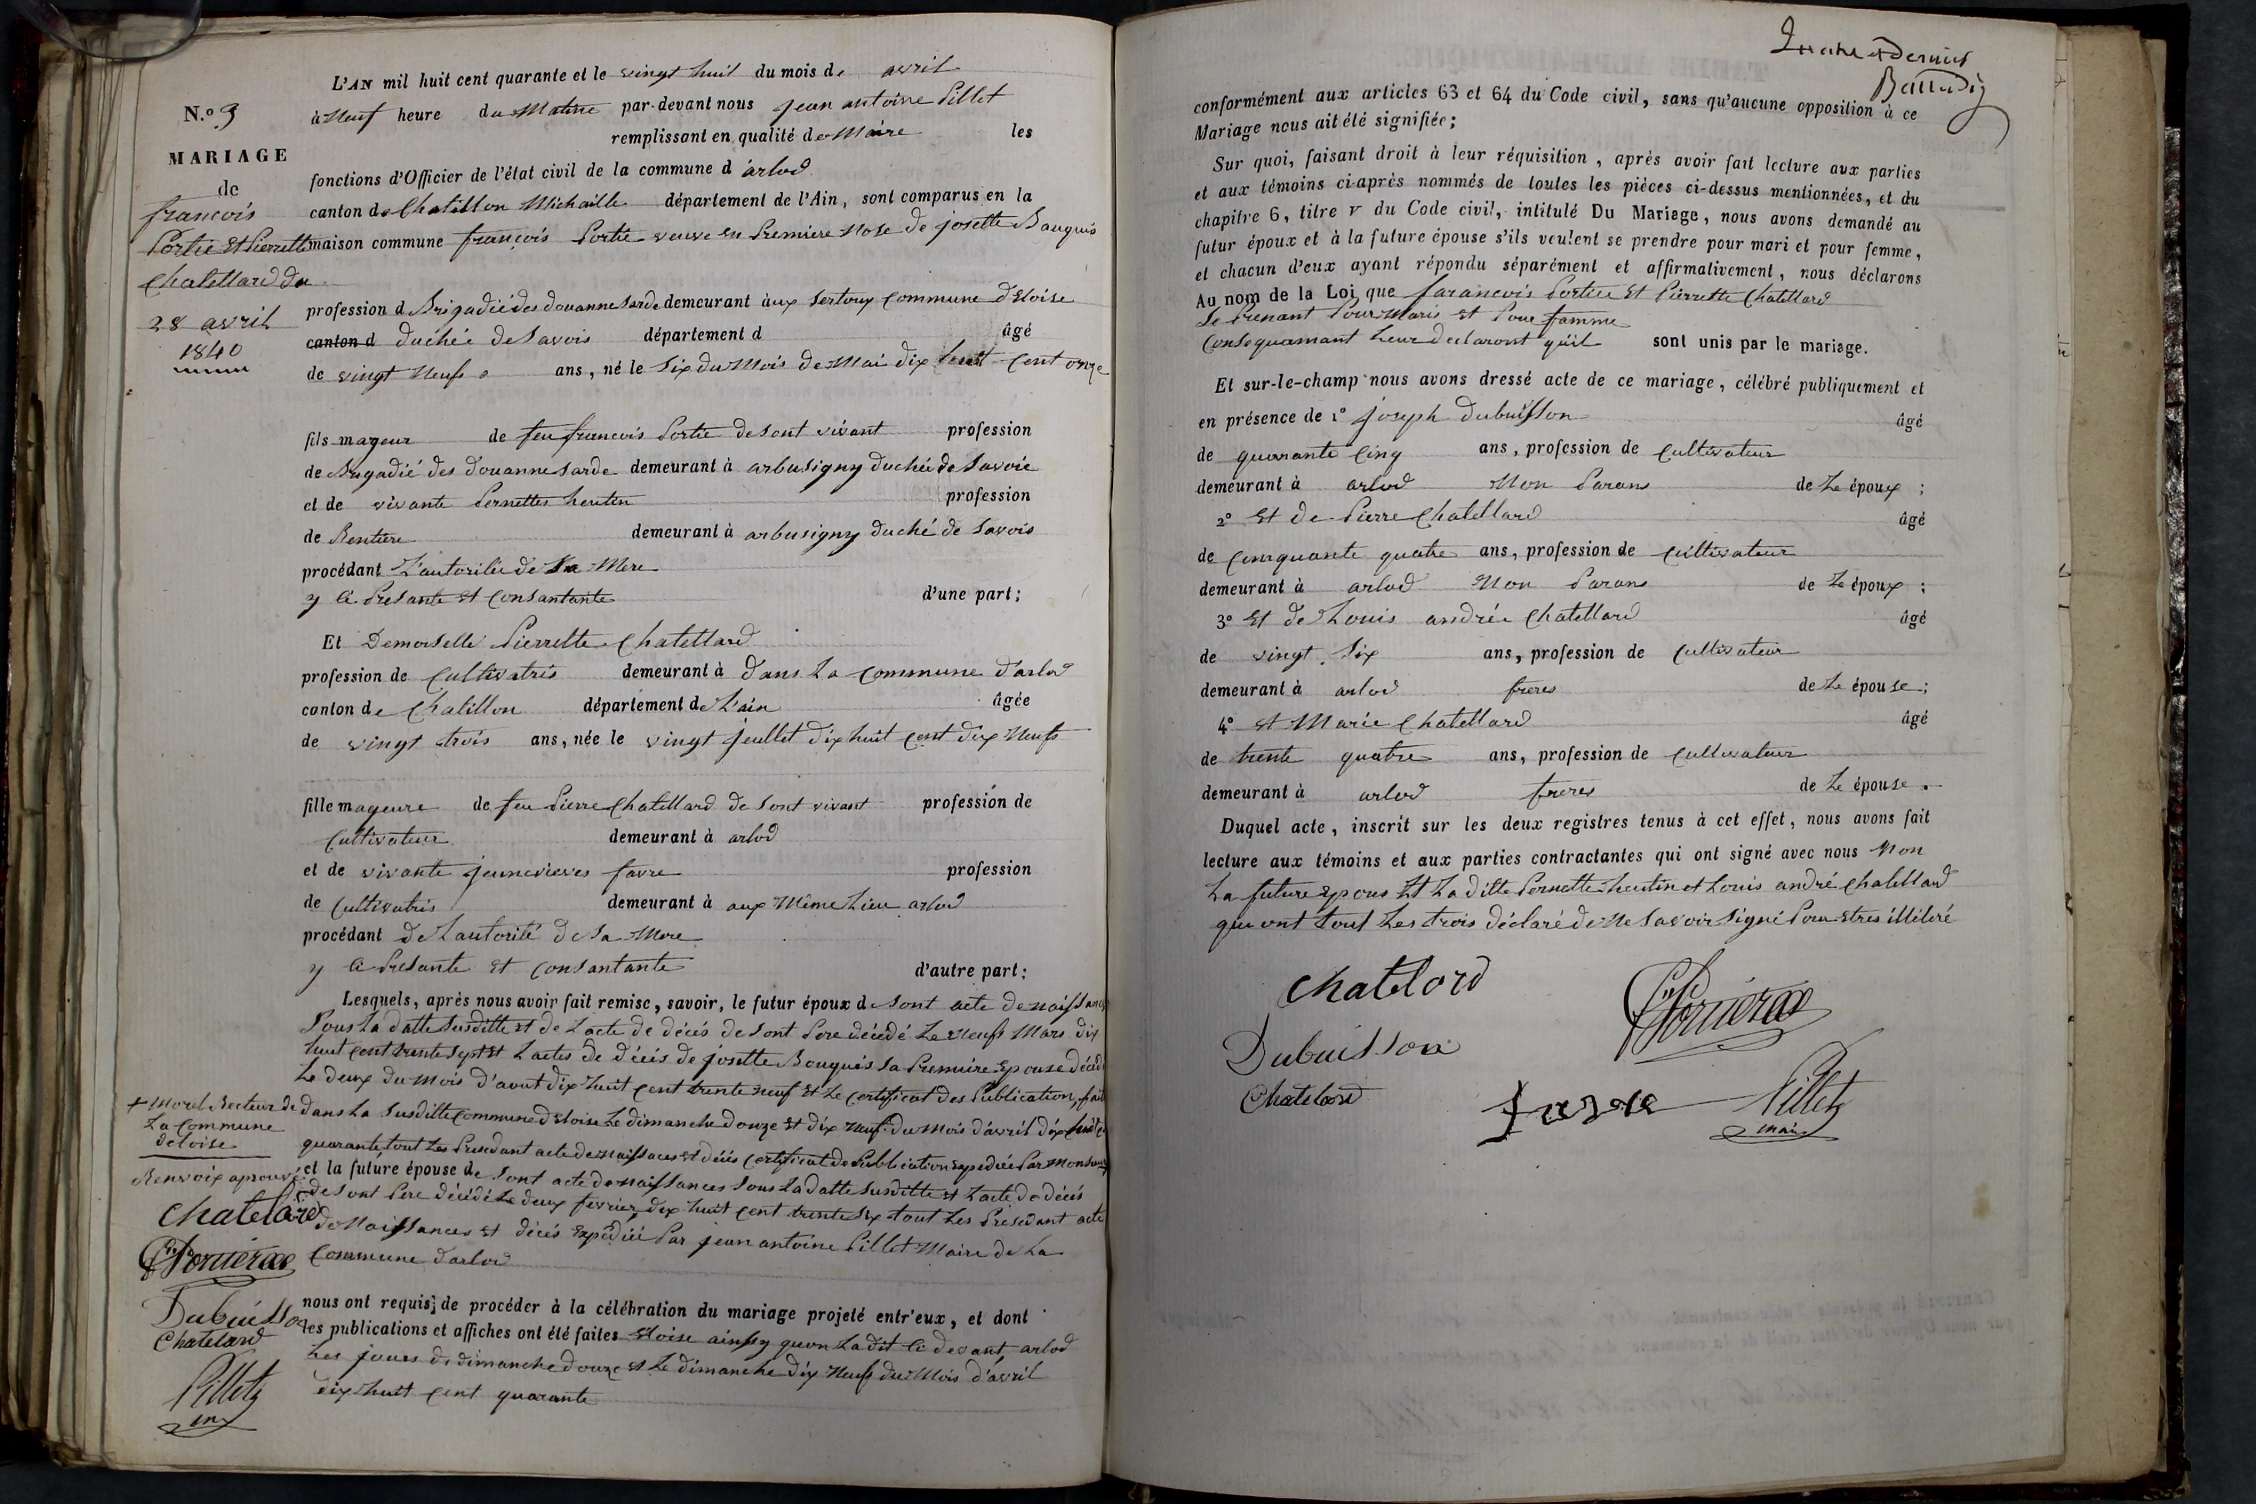 N.º 3
MARIAGE
de
francois
Portie Et Pierrette
Chatellard du
28 avril
1840
L'AN mil huit cent quarante et le vingt huit du mois de avril
à Neuf heure du Matine par-devant nous jean antoine Pillet
remplissant en qualité de Maire les
fonctions d'Officier de l'état civil de la commune d arlod
canton de Chatillon Michaille département de l'Ain, sont comparus en la
maison commune françois Portie veuve en Premiere Nose de josette Bouquis
profession d Brigadié des douanne Sarde demeurant aux commune d'Eloise
canton d duchée de Savois département d âgé
de vingt Neufs ans, né le Six du Mois de Mai dix huit Cent onze
fils mageur de feu francois Portie de Sont vivant profession
de Brigadié des douanne Sarde demeurant à arbusigny duchée de Savoie
et de vivante Pernettes heutin profession
de Rentiere demeurant à arbusigny duché de Savois
procédant L'autorilié de Sa Mere
y a Presante et Consantante d'une part;
Et Demoiselle Pierrette Chatellard
profession de Cultivatris demeurant à dans La Commune d'arlod
canton de Chatillon département de L'ain âgée
de vingt trois ans, née le vingt jeullet dix huit Cent dix Neufs
fille mageure de feu Pierre Chatellard de Sont vivant profession de
Cultivateur demeurant à arlod
et de vivante jennevieves favre profession
de Cultivatris demeurant à aux Même Lieu arlod
procédant de Lautorité de Sa Mere
y a Presante et Consantante d'autre part:
Lesquels, après nous avoir fait remise, savoir, le futur époux de Sont acte de naissances
Sous La datte Susditte et de Lacte de décés de Sont Pere décédé Le Neufs Mars dix
huit Cent trente Sept et Lactes de décés de josette Bouquis Sa Premiere Epouse décédé
Le deux du Mois d'avout dix huit Cent trente neuf et Le Certificat des Publication, fait
dans La Susditte Commune d'Eloise Le dimanche douze et dix neuf du Mois d'avril dix huit Cent
quarante, tout Les Presedant acte de naissances et décés Certificat de Publication expediée Par Monsieur
+ Morel Recteur de
La Commune
deloise
Renvoix aprouvé
et la future épouse de Sont acte de naissances Sous La datte Susditte et Lacte de décés
de Sont Pere décédé Le deux fevrier dix huit Cent trente Six tout Les Presedant acte
de Naissances et décés Expédiée Par jean antoine Pillet Maire de La
Commune d'arlod
Chatelard
Dubuisson
Chatelard
Pillet
nous ont requis de procéder à la célébration du mariage projeté entr'eux, et dont
les publications et affiches ont été faites Eloise ainssy quon La dit Ci devant, arlod
Les jours de dimanche douze et Le dimanche dix Neufs du Mois d'avril
dix huit Cent quarante
conformément aux articles 63 et 64 du Code civil, sans qu'aucune opposition à ce
Mariage nous ait été signifiée;
Sur quoi, faisant droit à leur réquisition, après avoir fait lecture aux parties
et aux témoins ci-après nommés de toutes les pièces ci-dessus mentionnées, et du
chapitre 6, titre V du Code civil, intitulé Du Mariage, nous avons demandé au
futur époux et à la future épouse s'ils veulent se prendre pour mari et pour femme,
et chacun d'eux ayant répondu séparément et affirmativement, nous déclarons
Au nom de la Loi que farancois Portier Et Pierrette Chatellard
Se Prenant Pour Maris et Pour famme
Consequamant Leur declaront quil sont unis par le mariage.
Et sur-le-champ nous avons dressé acte de ce mariage, célébré publiquement et
en présence de 1º joseph Dubuisson âgé
de quarante Cinq ans, profession de Cultivateur
demeurant à arlod Non Parans de Le époux;
2º Et de Pierre Chatellard âgé
de Cinquante quatre ans, profession de Cultivateur
demeurant à arlod Non Parans de Le époux;
3º Et de Louis andrée Chatellard âgé
de vingt Six ans, profession de Cultivateur
demeurant à arlod freres de Le épouse;
4º et Marie Chatellard âgé
de trente quatre ans, profession de Cultivateur
demeurant à arlod freres de Le épouse.
Duquel acte, inscrit sur les deux registres tenus à cet effet, nous avons fait
lecture aux témoins et aux parties contractantes qui ont signé avec nous Non
La future Epous Et La ditte Pernette heutin et Louis andré Chatellard
qui ont tout Les trois déclaré de Ne Savoir Signé Pour Etres illiteré
Chatelard
Dubuisson
Chatelard
Pillet
maire